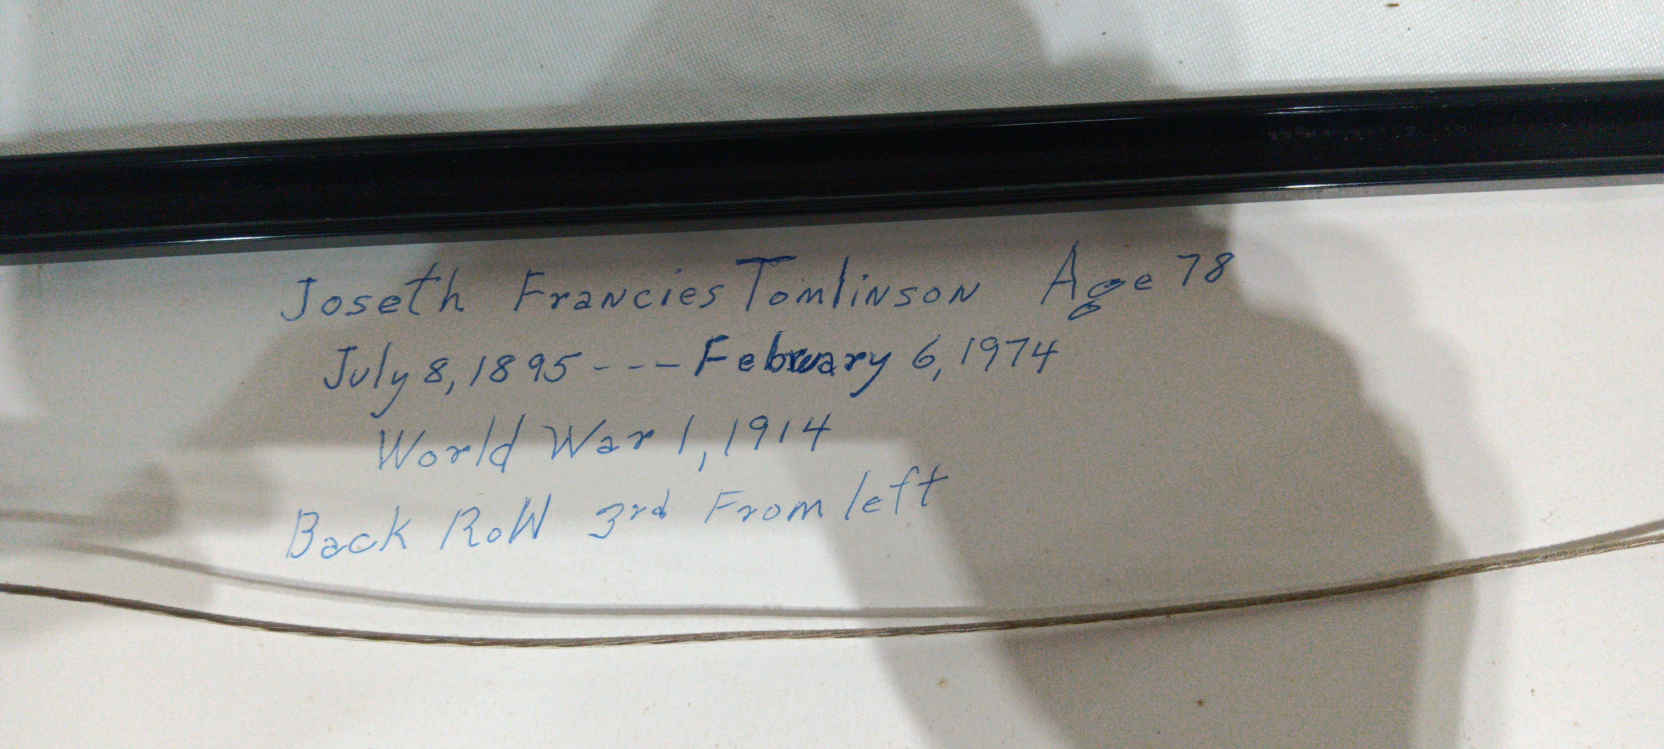 Joseth Francies Tomlinson Age 78
July 8, 1895 --- February 6, 1974
World War 1, 1914
Back Row 3rd From left